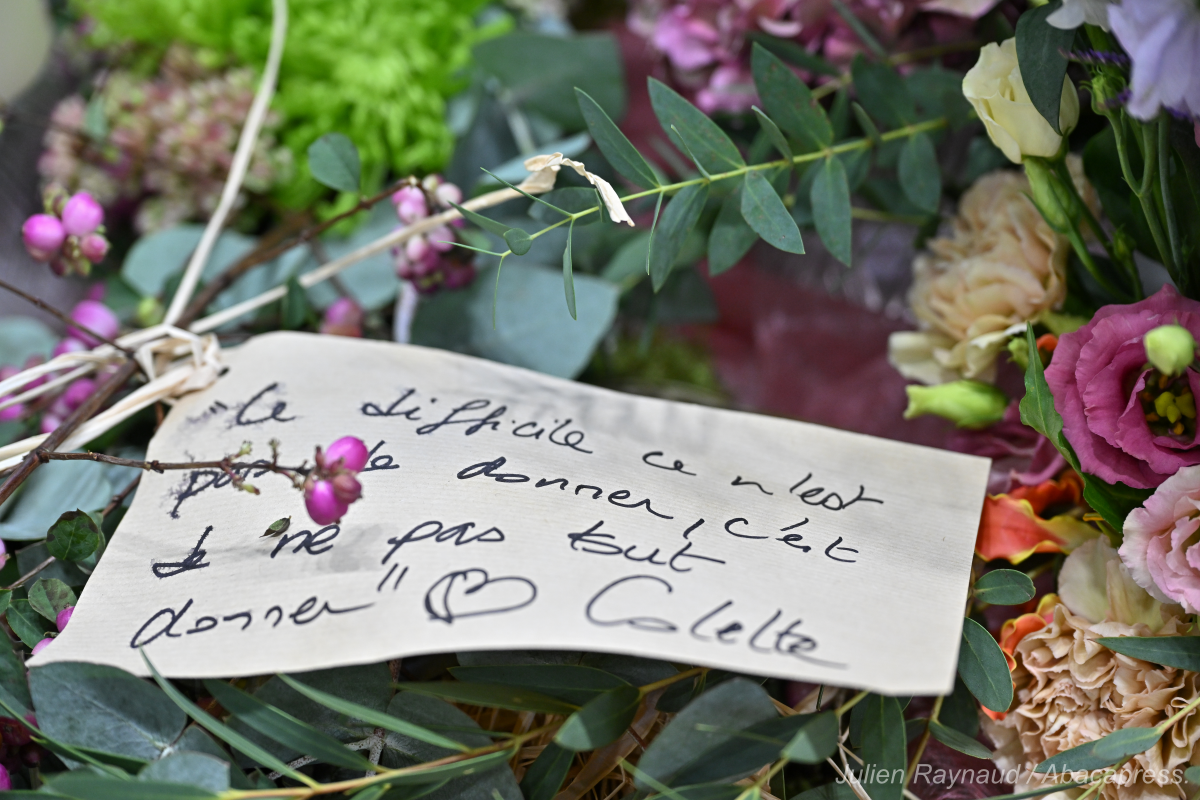 "Le difficile ce n'est
pas de donner, c'est
de ne pas tout
donner" Colette
Julien Raynaud / Abacapress.